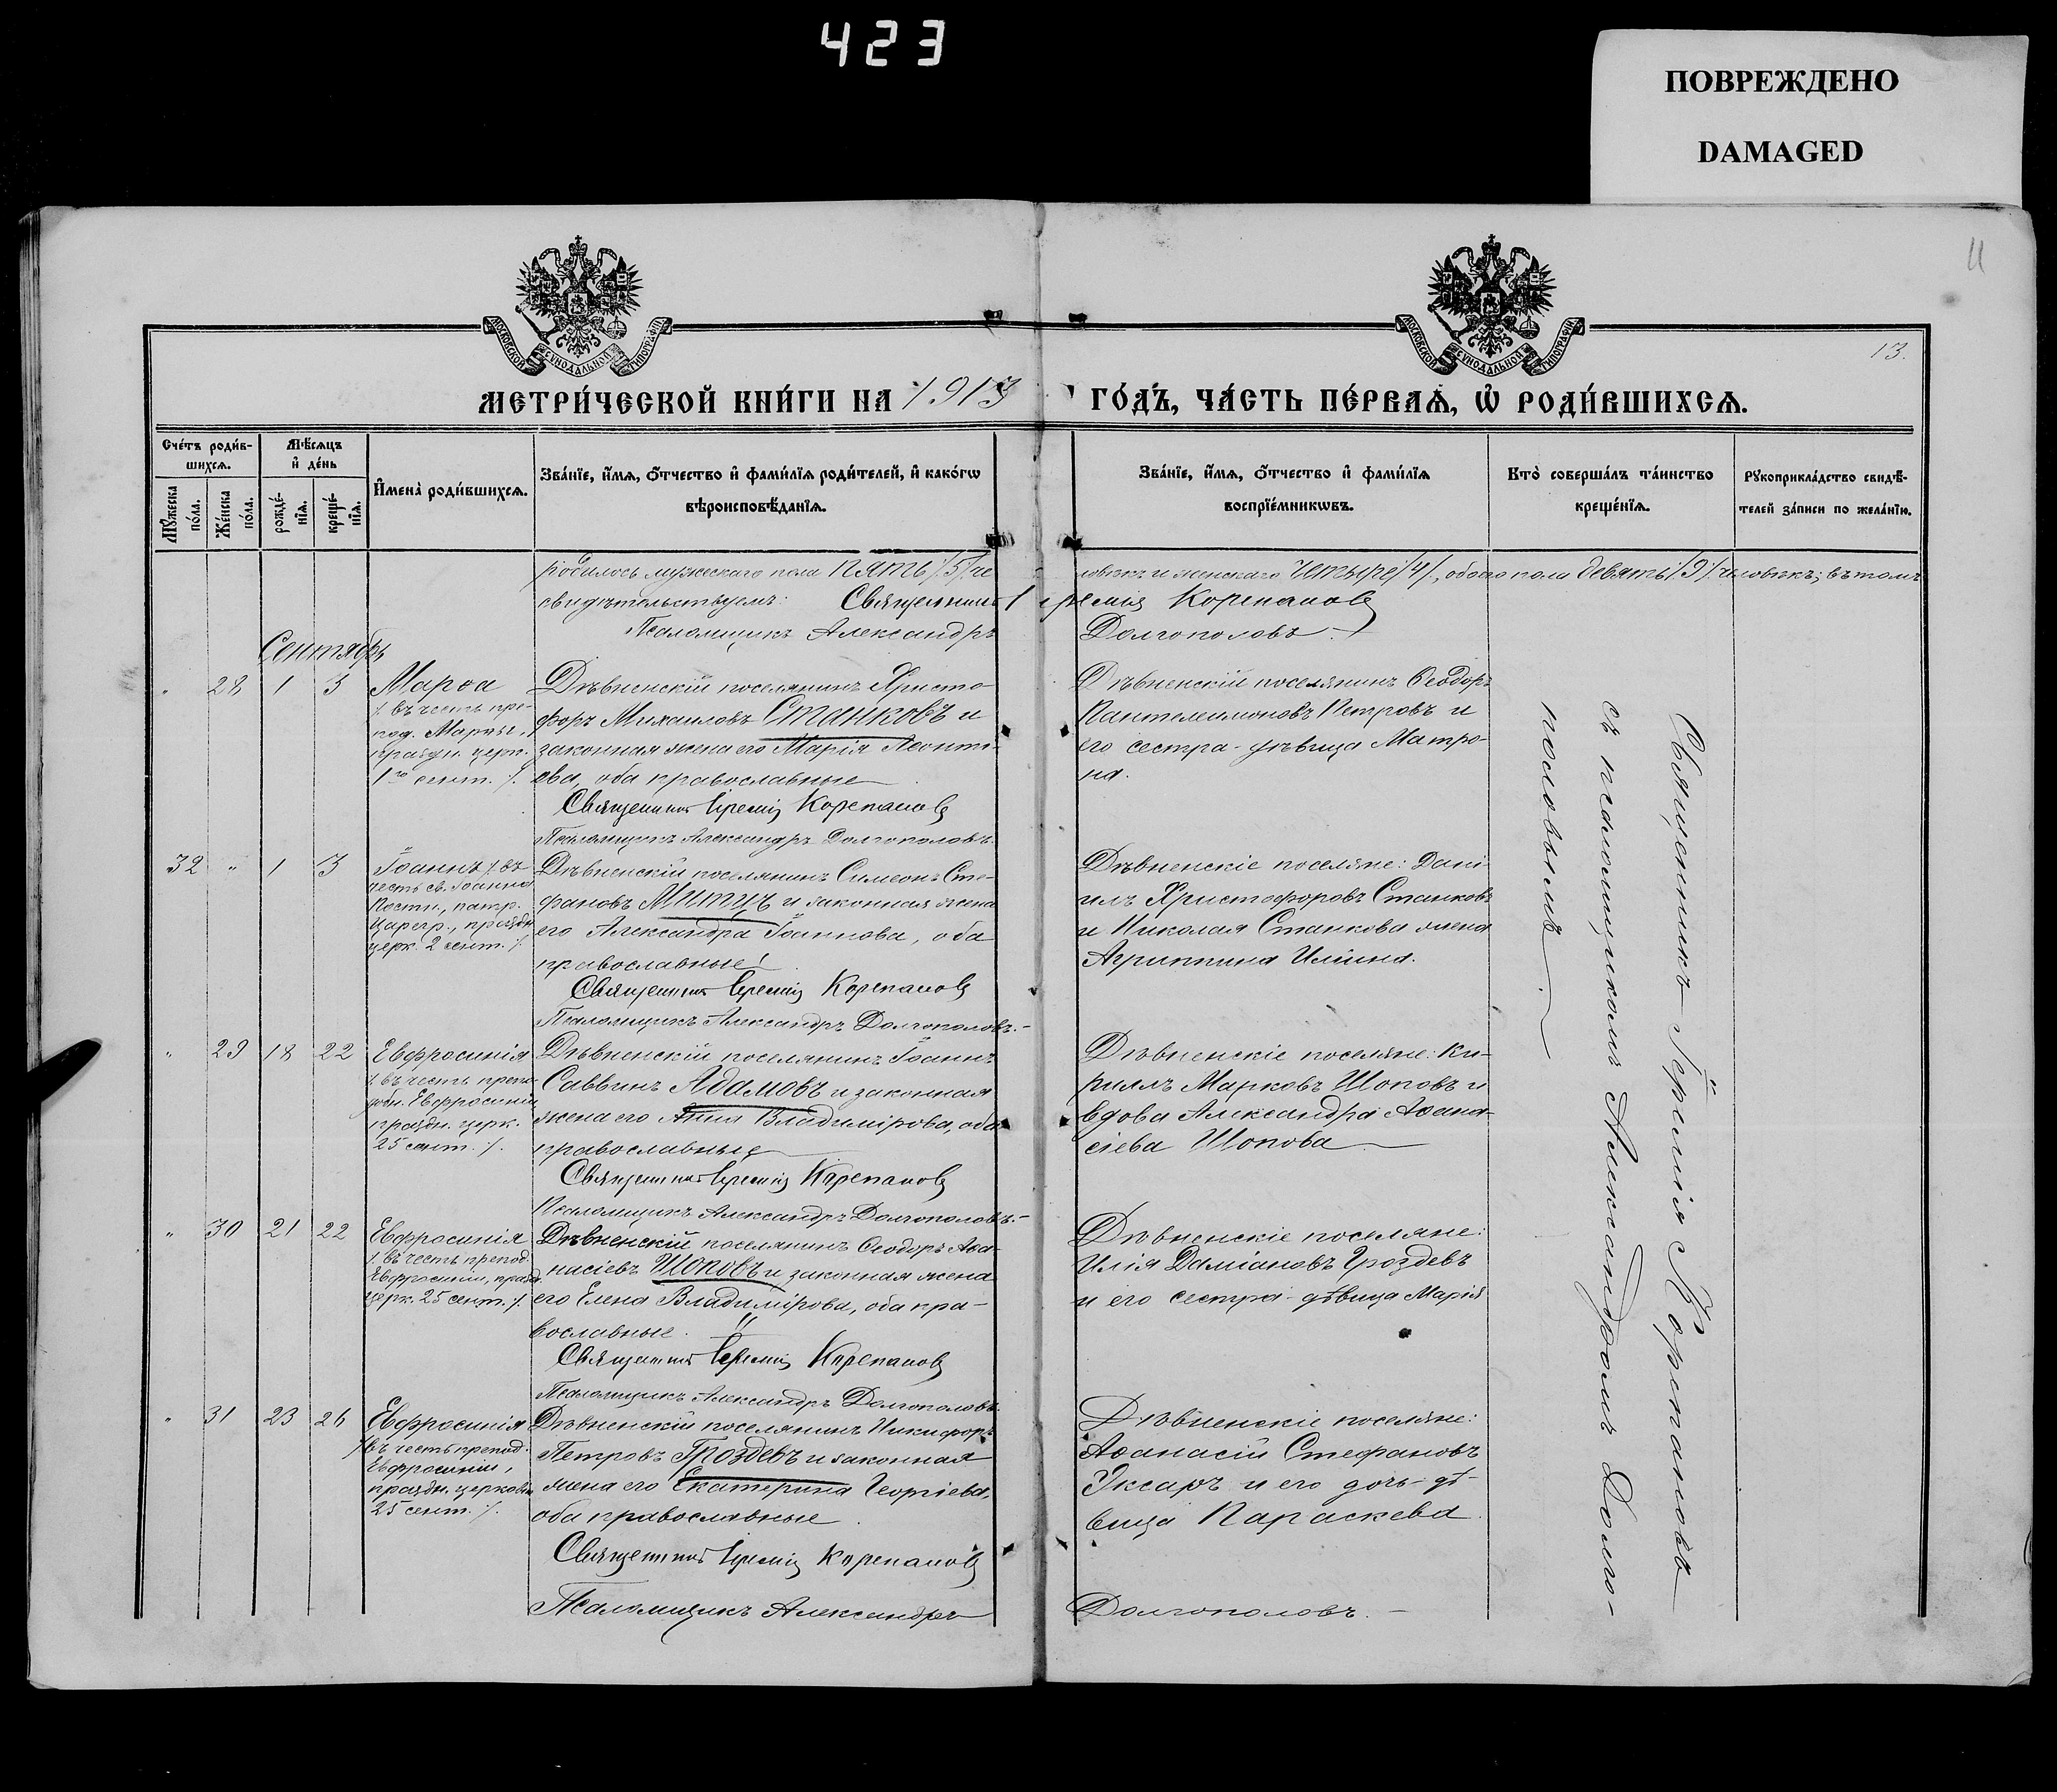 423
ПОВРЕЖДЕНО
DAMAGED
11
13.
МОСКОВСКОЙ СѴНОДАЛЬНОЙ ТИПОГРАФІИ
МОСКОВСКОЙ СѴНОДАЛЬНОЙ ТИПОГРАФІИ
МЕТРИ́ЧЕСКОЙ КНИ́ГИ НА 1913 ГО́ДЪ, ЧА́СТЬ ПЕ́РВАѦ, Ѡ҆ РОДИ́ВШИХСѦ.
Сче́тъ роди́в-
шихсѧ.
Мѣ́сѧцъ
и҆ де́нь
Мꙋ́жеска
по́ла.
Же́нска
по́ла.
рожде́-
нїѧ.
креще́-
нїѧ.
И҆мена̀ роди́вшихсѧ.
Зва́нїе, и҆́мѧ, ѻ҆́тчество и҆ фами́лїѧ роди́телей, и҆ како́гѡ
вѣроисповѣ́данїѧ.
Зва́нїе, и҆́мѧ, ѻ҆́тчество и҆ фами́лїѧ
воспрїе́мникѡвъ.
Кто̀ соверша́лъ та́инство
креще́нїѧ.
Рꙋкоприкла́дство свидѣ́-
телей за́писи по жела́нїю.
родилось мужескаго пола пять /5/ че ловѣкъ и женскаго четыре /4/, обоего пола девять /9/ человѣкъ; въ томъ
свидѣтельствуемъ: Священникъ Іеремія Корепановъ
Псаломщикъ Александръ Долгополовъ
Сентябрь
" 28 1 3 Марѳа
/: въ честь пре-
под. Марѳы,
праздн. церк.
1го сент. :/.
Дѣвненскій поселянинъ Христо-
форъ Михаиловъ Станковъ и
законная жена его Марія Леонті-
ева, оба православные
Священникъ Іеремія Корепановъ
Псаломщикъ Александръ Долгополовъ.
Дѣвненскій поселянинъ Ѳеодоръ
Пантелеимоновъ Петровъ и
его сестра-дѣвица Матро-
на.
32 " 1 3 Іоаннъ /: въ
честь св. Іоанна
Постн., патр.
Царегр., праздн.
церк. 2 сент. :/.
Дѣвненскій поселянинъ Симеонъ Сте-
фановъ Митцъ и законная жена
его Александра Іоаннова, оба
православные
Священникъ Іеремія Корепановъ
Псаломщикъ Александръ Долгополовъ.-
Дѣвненскіе поселяне: Дані-
илъ Христофоровъ Станковъ
и Николая Станкова жена
Агриппина Иліина.
" 29 18 22 Евфросинія
/: въ честь препо-
добн. Евфросиніи
праздн. церк.
25 сент. :/.
Дѣвненскій поселянинъ Іоаннъ
Саввинъ Адамовъ и законная
жена его Анна Владимірова, оба
православные
Священникъ Іеремія Корепановъ
Псаломщикъ Александръ Долгополовъ.-
Дѣвненскіе поселяне: Ки-
риллъ Марковъ Шоповъ и
вдова Александра Аѳана-
сіева Шопова
" 30 21 22 Евфросинія
/: въ честь препод.
Евфросиніи, празд.
церк. 25 сент. :/.
Дѣвненскій поселянинъ Ѳеодоръ Аѳа-
насіевъ Шоповъ и законная жена
его Елена Владимірова, оба пра-
вославные.
Священникъ Іеремія Корепановъ
Псаломщикъ Александръ Долгополовъ.
Дѣвненскіе поселяне:
Илія Даміановъ Гроздевъ
и его сестра-дѣвица Марія
" 31 23 26 Евфросинія
/: въ честь препод.
Евфросиніи,
праздн. церковью
25 сент. :/.
Дѣвненскій поселянинъ Никифоръ
Петровъ Гроздевъ и законная
жена его Екатерина Георгіева,
оба православные
Священникъ Іеремія Корепановъ
Псаломщикъ Александръ Долгополовъ.-
Дѣвненскіе поселяне:
Аѳанасій Стефановъ
Уксаръ и его дочь-дѣ-
вица Параскева.
Священникъ Іеремія Корепановъ
съ псаломщикомъ Александромъ Долго-
половымъ